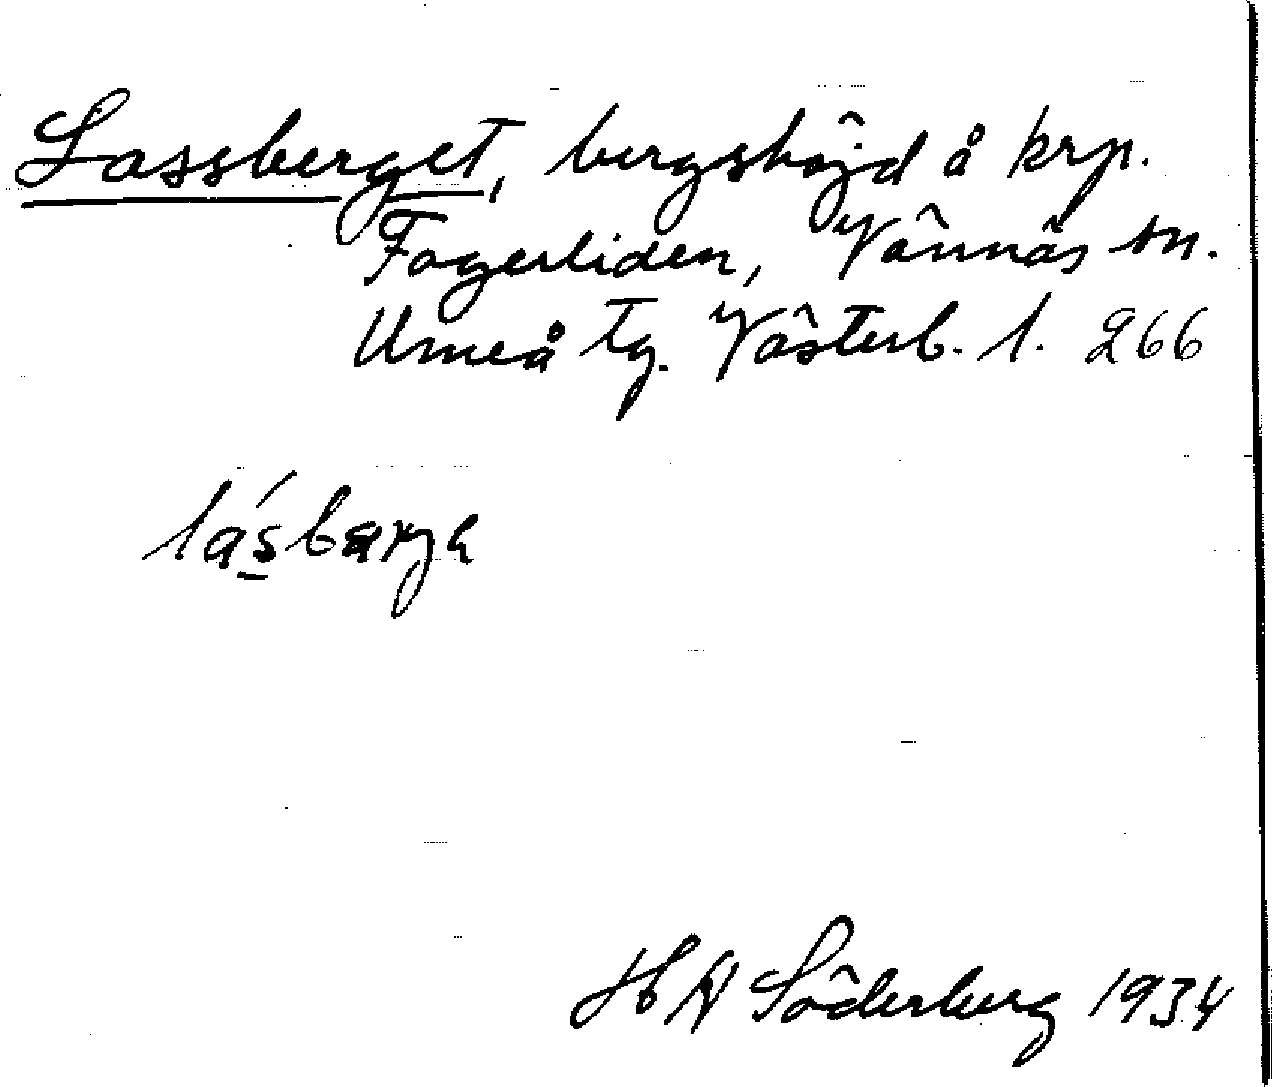 Lassberget, bergshöjd å krp.
Fagerliden, Vännäs sn.
Umeå tg. Västerb. l. 266
lásbarja
H Söderberg 1934